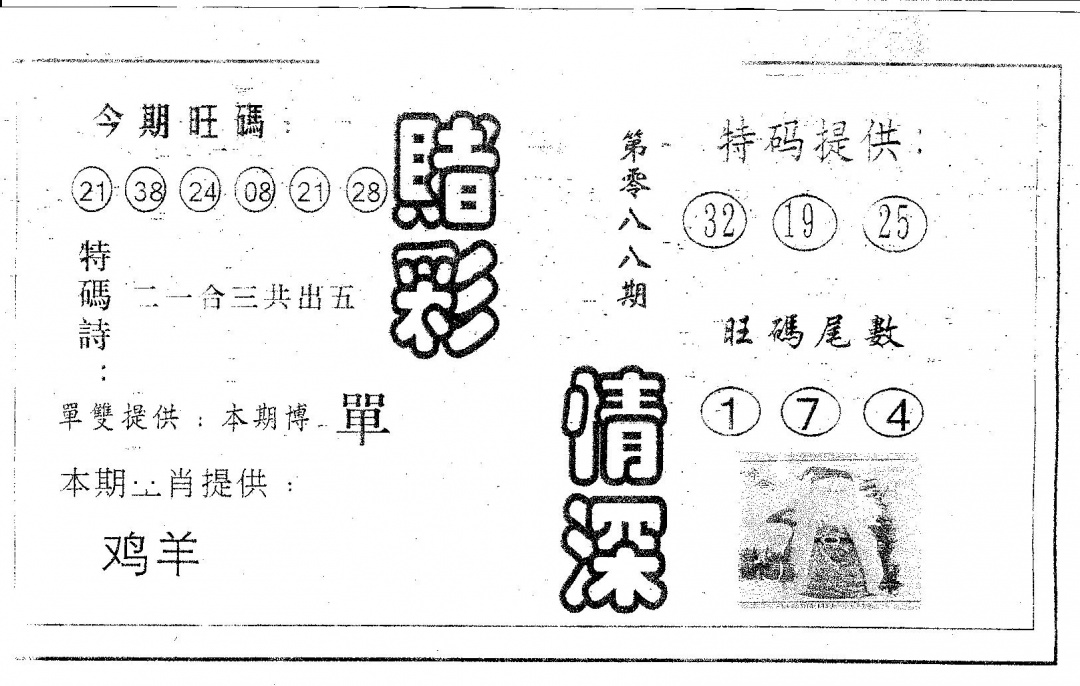 今期旺碼：
21 38 24 08 21 28
特碼詩：
二一合三共出五
單雙提供：本期博 單
本期 肖提供：
鸡羊
賭彩
情深
第零八八期
特码提供：
32 19 25
旺碼尾數
1 7 4